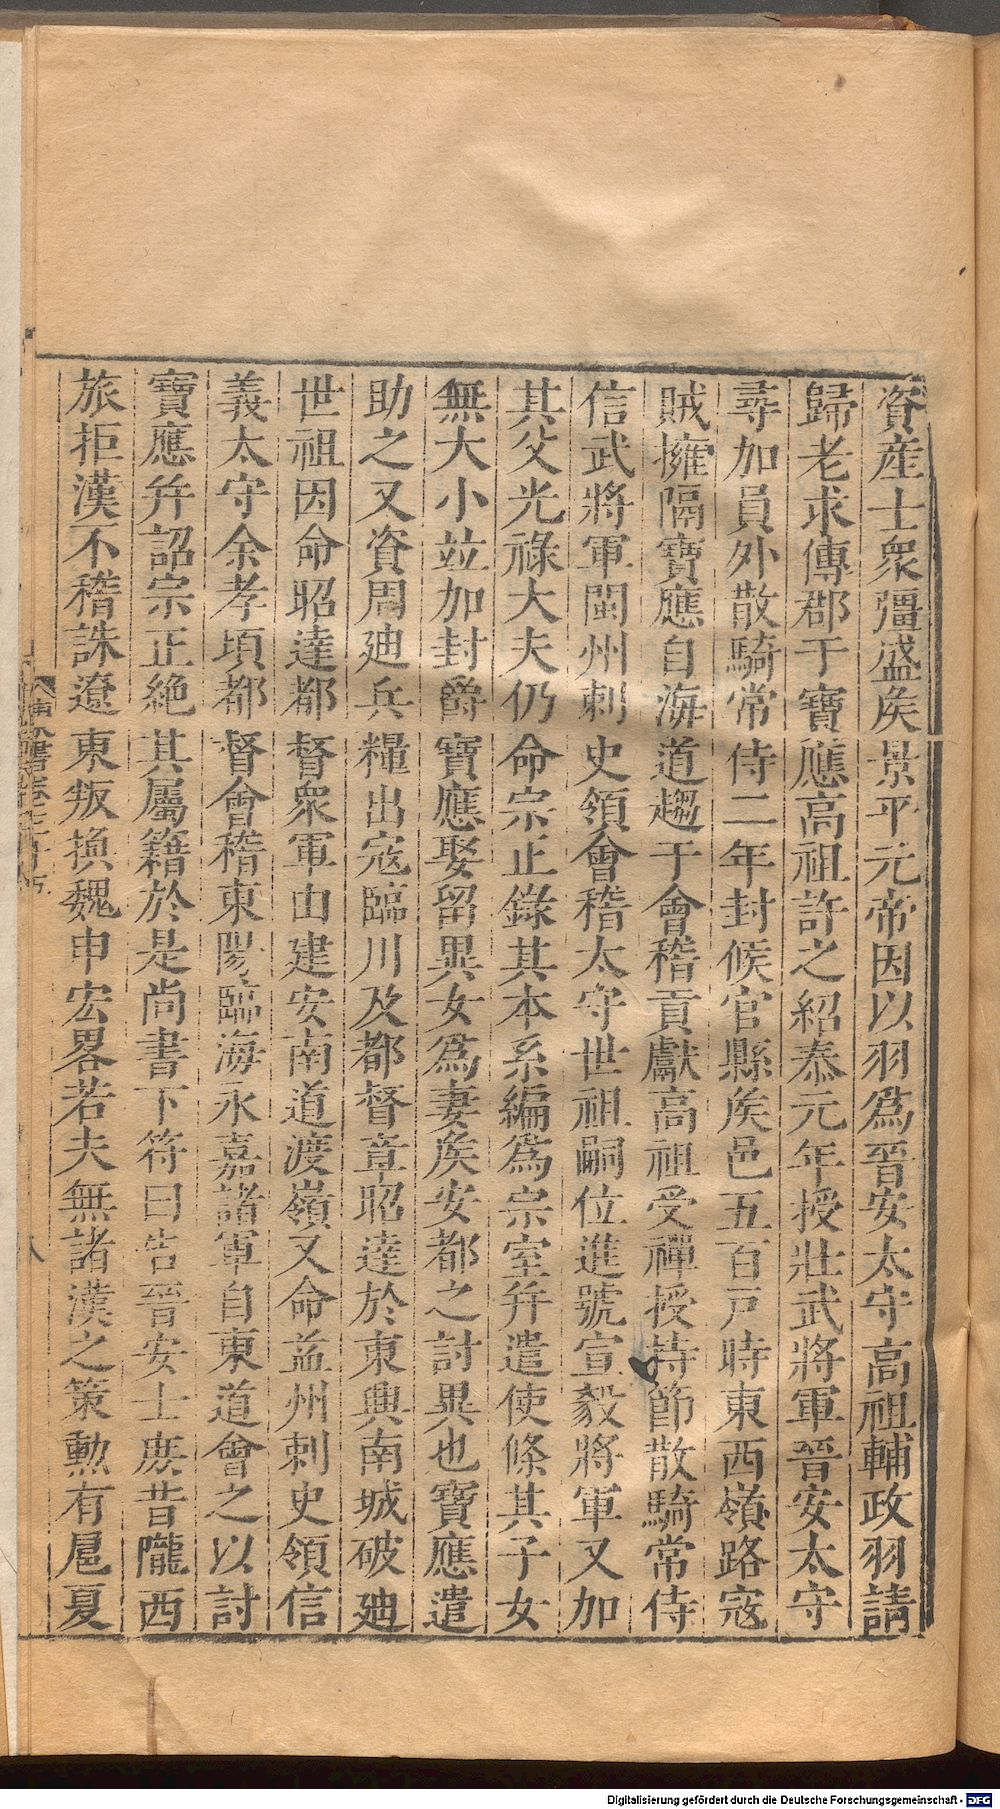 資産士衆彊盛矦景平元帝因以羽爲晉安太守高祖輔政羽請
歸老求傳郡于寶應高祖許之紹泰元年授壯武將軍晉安太守
尋加員外散騎常侍二年封候官縣矦邑五百戸時東西嶺路寇
賊擁隔寶應自海道趨于會稽貢獻高祖受禪授持節散騎常侍
信武將軍閩州刺史領會稽太守世祖嗣位進號宣毅將軍又加
其父光祿大夫仍命宗正錄其本系編爲宗室幷遣使條其子女
無大小竝加封爵寶應娶留異女爲妻矦安都之討異也寶應遣
助之又資周迪兵糧出寇臨川及都督章昭達於東興南城破迪
世祖因命昭達都督衆軍由建安南道渡嶺又命益州刺史領信
義太守余孝頃都督會稽東陽臨海永嘉諸軍自東道會之以討
寶應幷詔宗正絶其屬籍於是尚書下符曰告晉安士庶昔隴西
旅拒漢不稽誅遼東叛換魏申宏畧若夫無諸漢之策勲有扈夏
八
Digitalisierung gefördert durch die Deutsche Forschungsgemeinschaft - DFG